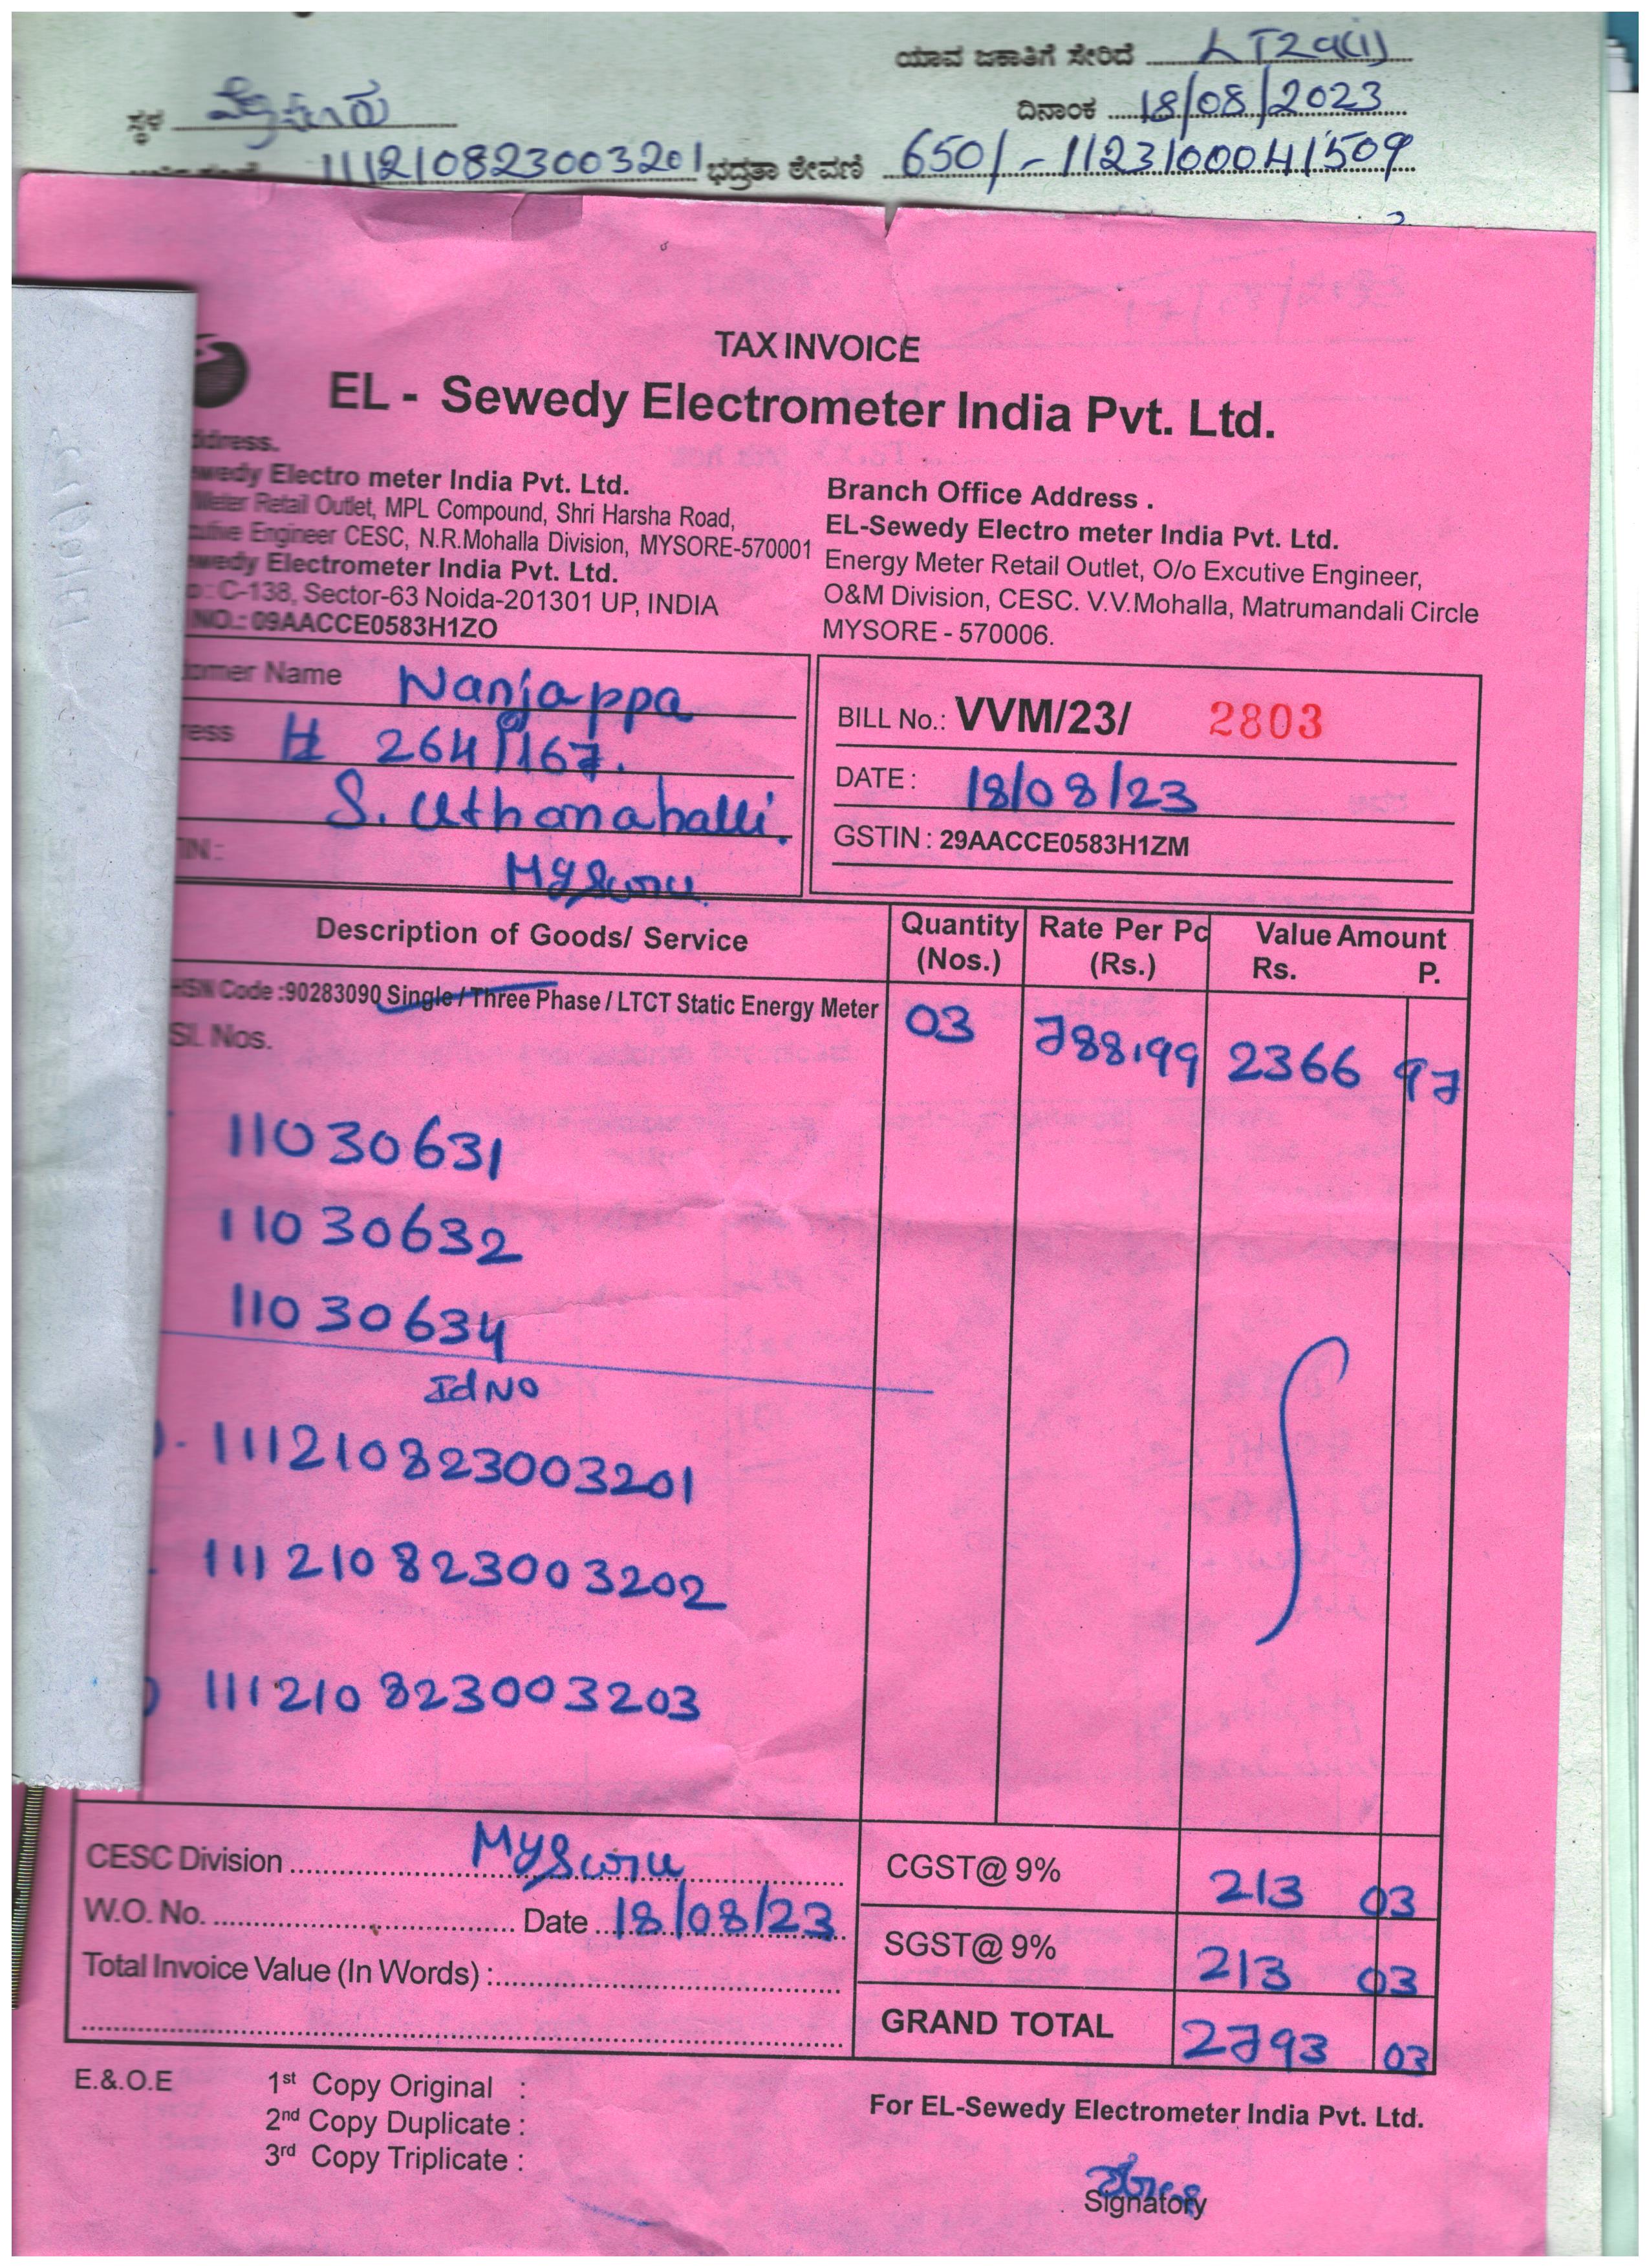 ಯಾವ ಜಕಾತಿಗೆ ಸೇರಿದೆ LT2a(i)
ಸ್ಥಳ ಮೈಸೂರು ದಿನಾಂಕ 18/08/2023
111210823003201 ಭದ್ರತಾ ಠೇವಣಿ 650/- 1123100041509
TAX INVOICE
EL - Sewedy Electrometer India Pvt. Ltd.
ddress.
wedy Electro meter India Pvt. Ltd.
Meter Retail Outlet, MPL Compound, Shri Harsha Road,
cutive Engineer CESC, N.R.Mohalla Division, MYSORE-570001
wedy Electrometer India Pvt. Ltd.
C-138, Sector-63 Noida-201301 UP, INDIA
NO.: 09AACCE0583H1ZO
Branch Office Address .
EL-Sewedy Electro meter India Pvt. Ltd.
Energy Meter Retail Outlet, O/o Excutive Engineer,
O&M Division, CESC. V.V.Mohalla, Matrumandali Circle
MYSORE - 570006.
omer Name Nanjappa
ress # 264/167.
S. Uthanahalli.
IN :
Mysuru
BILL No.: VVM/23/ 2803
DATE : 18/08/23
GSTIN : 29AACCE0583H1ZM
Description of Goods/ Service Quantity (Nos.) Rate Per Pc (Rs.) Value Amount Rs. P.
HSN Code :90283090 Single / Three Phase / LTCT Static Energy Meter 03 788.99 2366 97
Sl. Nos.
11030631
11030632
11030634
Id NO
111210823003201
111210823003202
111210823003203
CESC Division Mysuru
W.O. No. Date 18/08/23
Total Invoice Value (In Words) :
CGST@ 9% 213 03
SGST@ 9% 213 03
GRAND TOTAL 2793 03
E.&.O.E 1st Copy Original :
2nd Copy Duplicate :
3rd Copy Triplicate :
For EL-Sewedy Electrometer India Pvt. Ltd.
Signatory